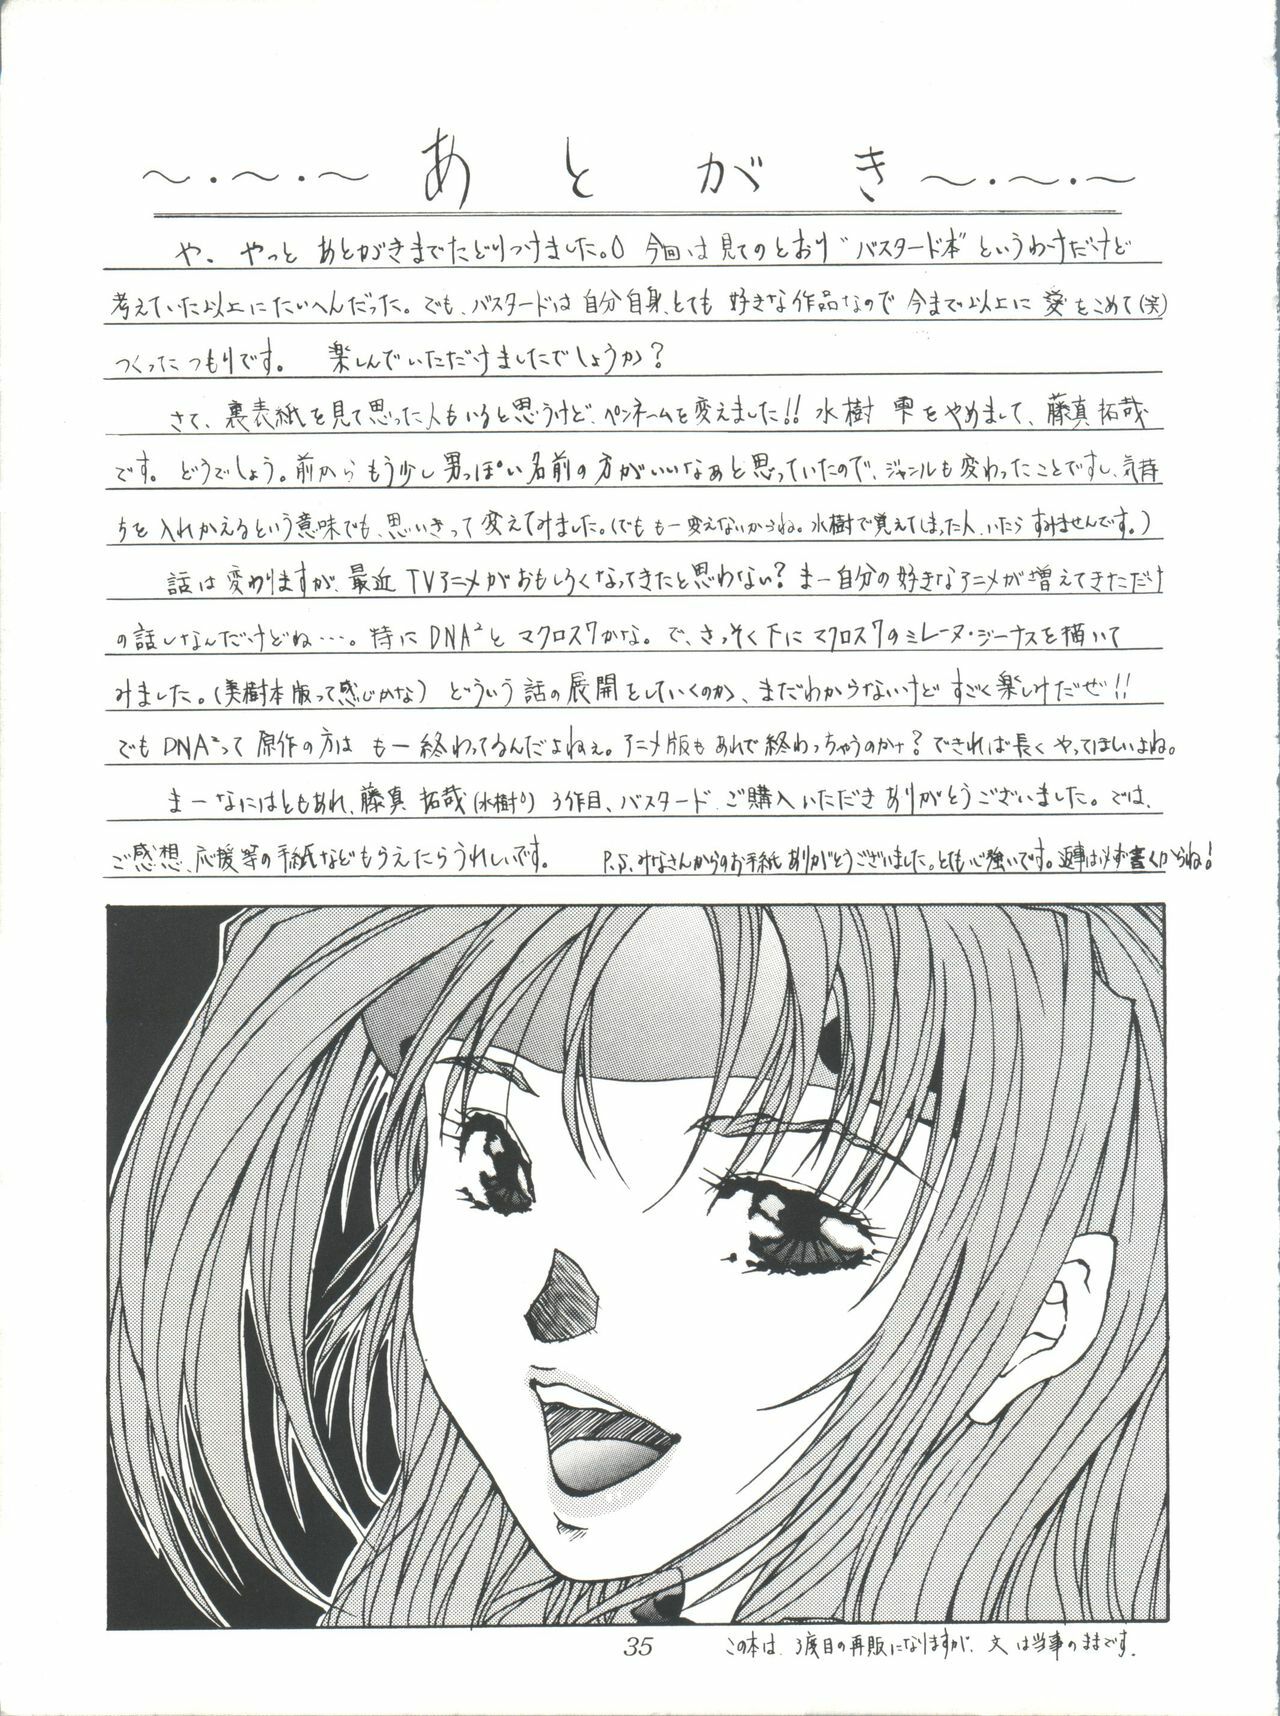 ～・～・～ あとがき ～・～・～
や、やっと あとがきまでたどりつけました。今回は見てのとおり"バスタード本"というわけだけど
考えていた以上にたいへんだった。でも、バスタードは自分自身、とても好きな作品なので今まで以上に愛をこめて(笑)
つくったつもりです。 楽しんでいただけましたでしょうか?
さて、裏表紙を見て思った人もいると思うけど、ペンネームを変えました!! 水樹 雫をやめまして、藤真拓哉
です。どうでしょう。前からもう少し男っぽい名前の方がいいなぁと思っていたので、ジャンルも変わったことですし、気持
ちを入れかえるという意味でも、思いきって変えてみました。(でももー変えないからね。水樹で覚えてしまった人、いたらすみませんです。)
話は変わりますが、最近TVアニメがおもしろくなってきたと思わない? まー自分の好きなアニメが増えてきただけ
の話しなんだけどね…。特にDNA²とマクロス7かな。で、さっそく下にマクロス7のミレーヌ・ジーナスを描いて
みました。(美樹本版って感じかな) どういう話の展開をしていくのか、まだわからないけどすごく楽しみだぜ!!
でもDNA²って原作の方はもー終わってるんだよねぇ。アニメ版もあれで終わっちゃうのかナ? できれば長くやってほしいよね。
まーなにはともあれ、藤真 拓哉(水樹り) 3作目、バスタード ご購入いただきありがとうございました。では、
ご感想、応援等の手紙などもらえたらうれしいです。 P.S.みなさんからのお手紙ありがとうございました。とても心強いです。返事は必ず書くからね!
35
この本は、3度目の再販になりますが、文は当事のままです。